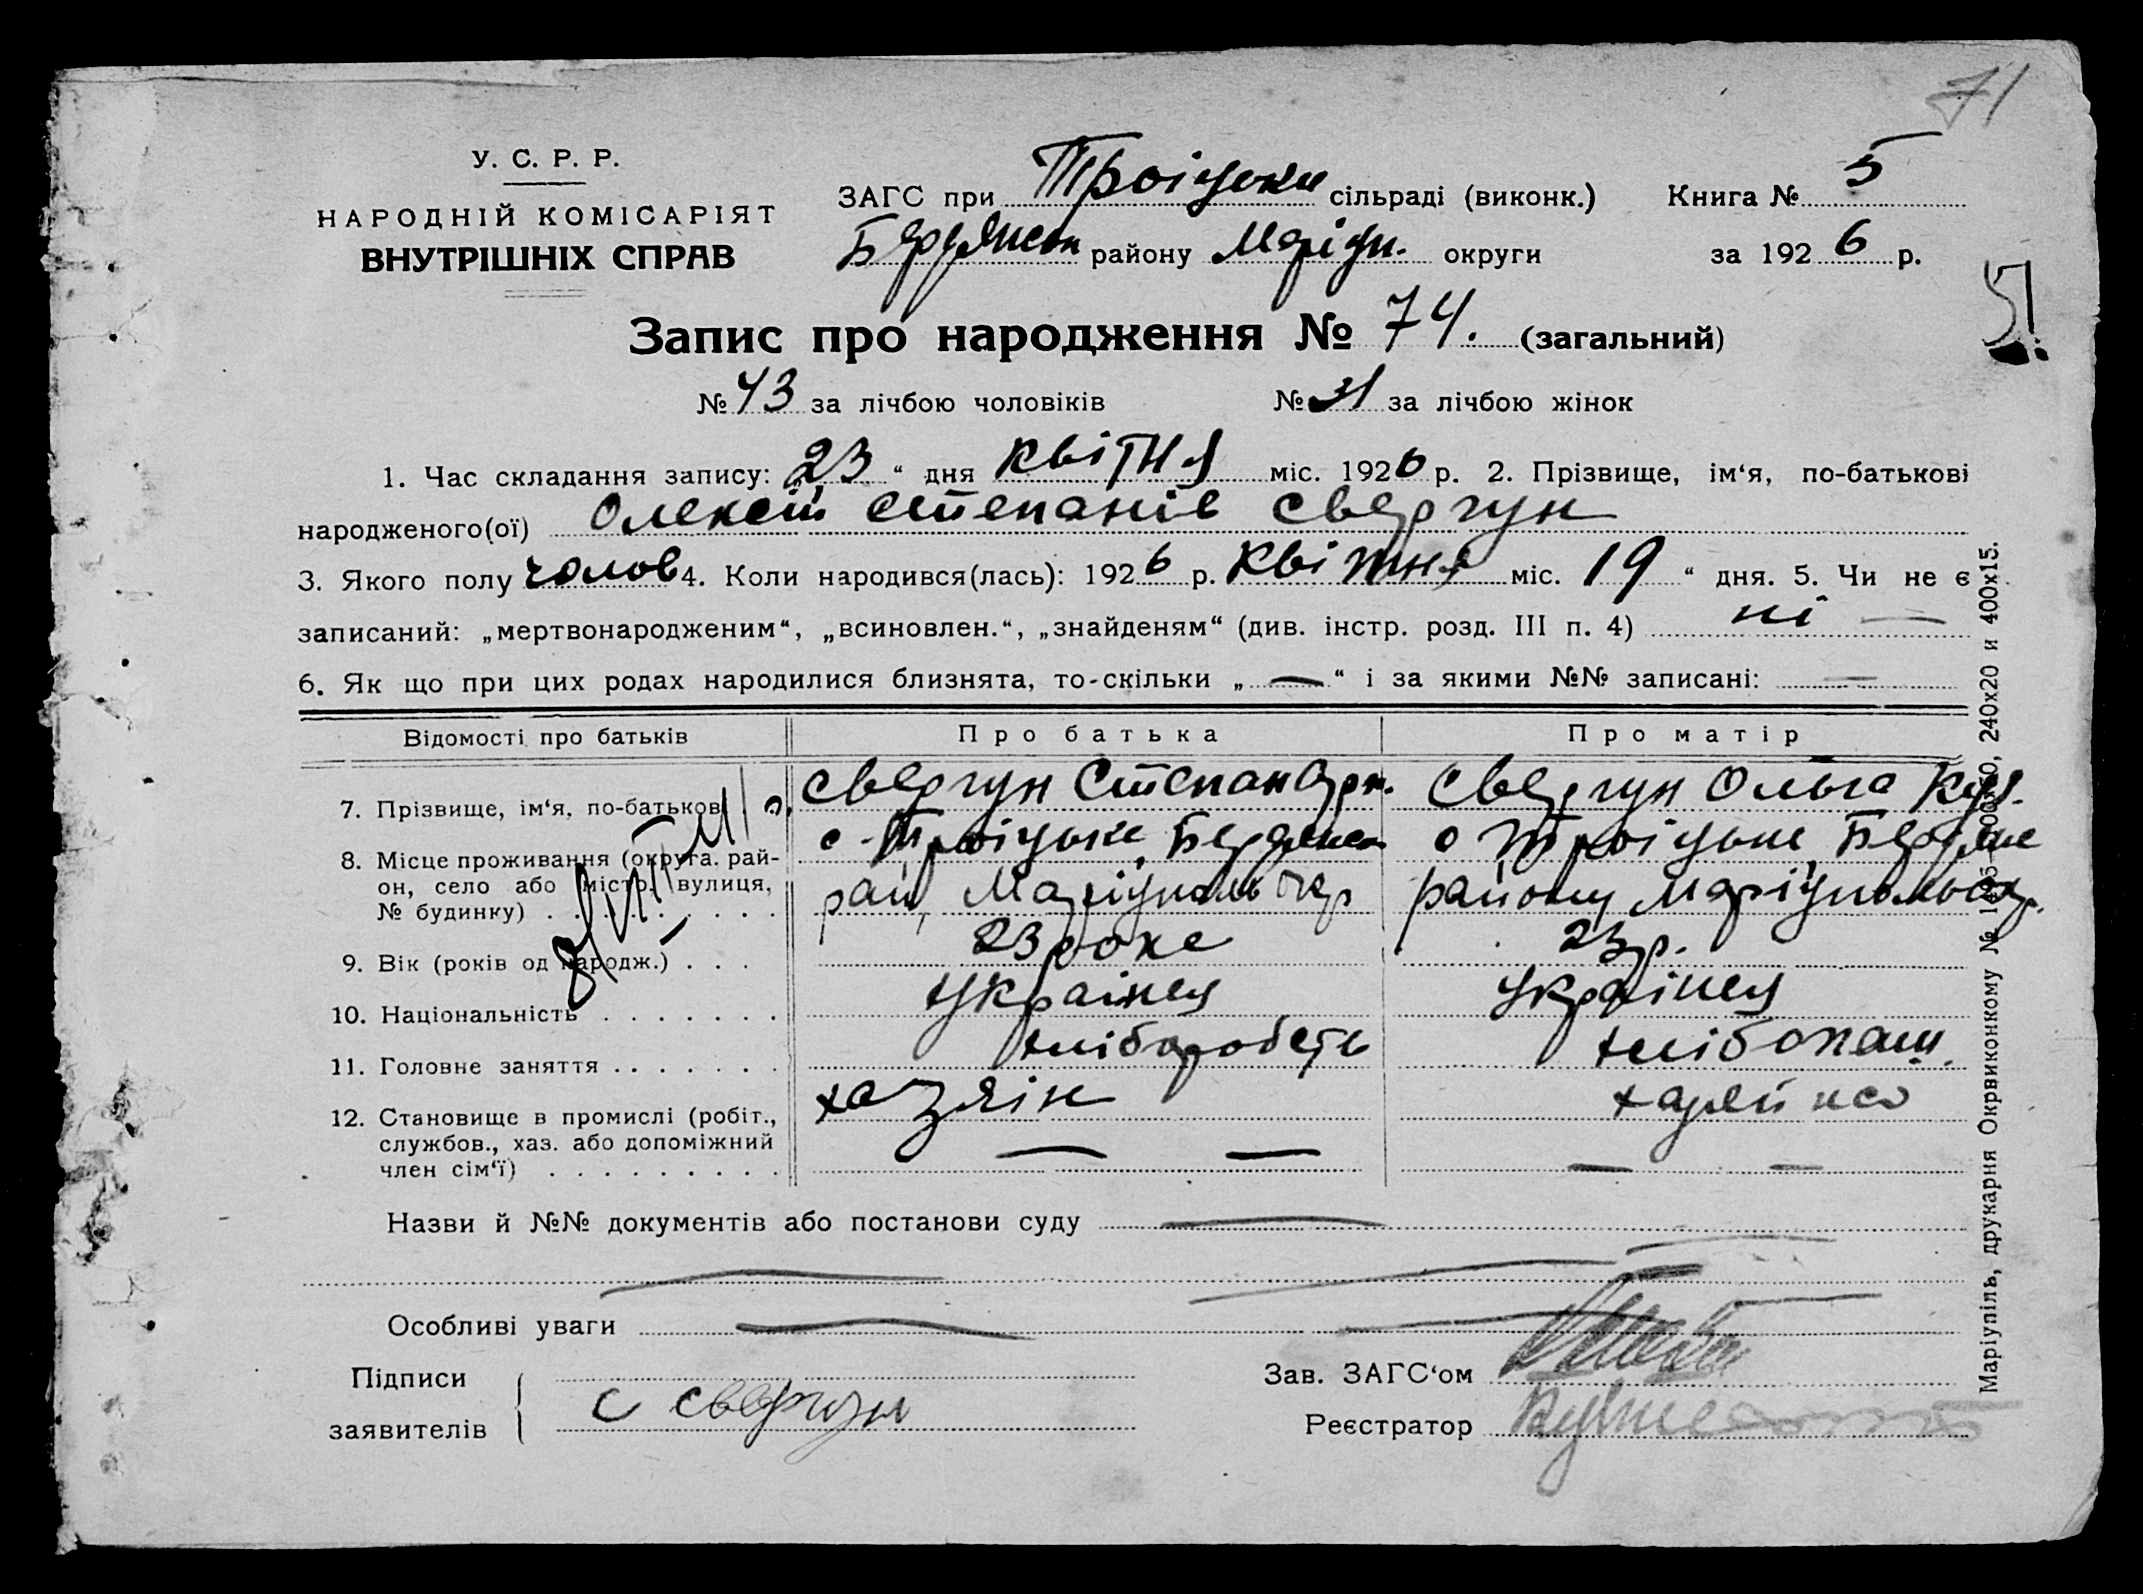 71
У. С. Р. Р.
НАРОДНІЙ КОМІСАРІЯТ
ВНУТРІШНІХ СПРАВ
ЗАГС при Троіцьки сільраді (виконк.) Книга № 5
Бердянськ району Маріуп. округи за 1926 р.
51
Запис про народження № 74. (загальний)
№ 43 за лічбою чоловіків № 31 за лічбою жінок
1. Час складання запису: 23 “ дня квітня міс. 1926 р. 2. Прізвище, ім‘я, по-батькові
народженого(ої) Олексій Степанів Свергун
3. Якого полу чолов 4. Коли народився(лась): 1926 р. Квітня міс. 19 “ дня. 5. Чи не є
записаний: „мертвонародженим“, „всиновлен.“, „знайденям“ (див. інстр. розд. III п. 4) ні —
6. Як що при цих родах народилися близнята, то-скільки „ — “ і за якими №№ записані: —
Відомості про батьків Про батька Про матір
7. Прізвище, ім‘я, по-батькові Свергун Степан Свергун Ольга
8. Місце проживання (округа, рай-он, село або місто, вулиця, № будинку) с. Троіцьке, Бердянськ с Троіцьке, Бердянс
рай, Маріуполь Окр району Маріупольск
9. Вік (років од народж.) 23 роке 23 р.
10. Національність українец українец
11. Головне заняття хліборобств хлібопаш.
12. Становище в промислі (робіт., службов., хаз. або допоміжний член сім‘ї) хазяін
Назви й №№ документів або постанови суду —
Особливі уваги —
Підписи заявителів С Свергун
Зав. ЗАГС‘ом
Реєстратор
Маріупіль, друкарня Окрвиконкому № 240x20 и 400x15.